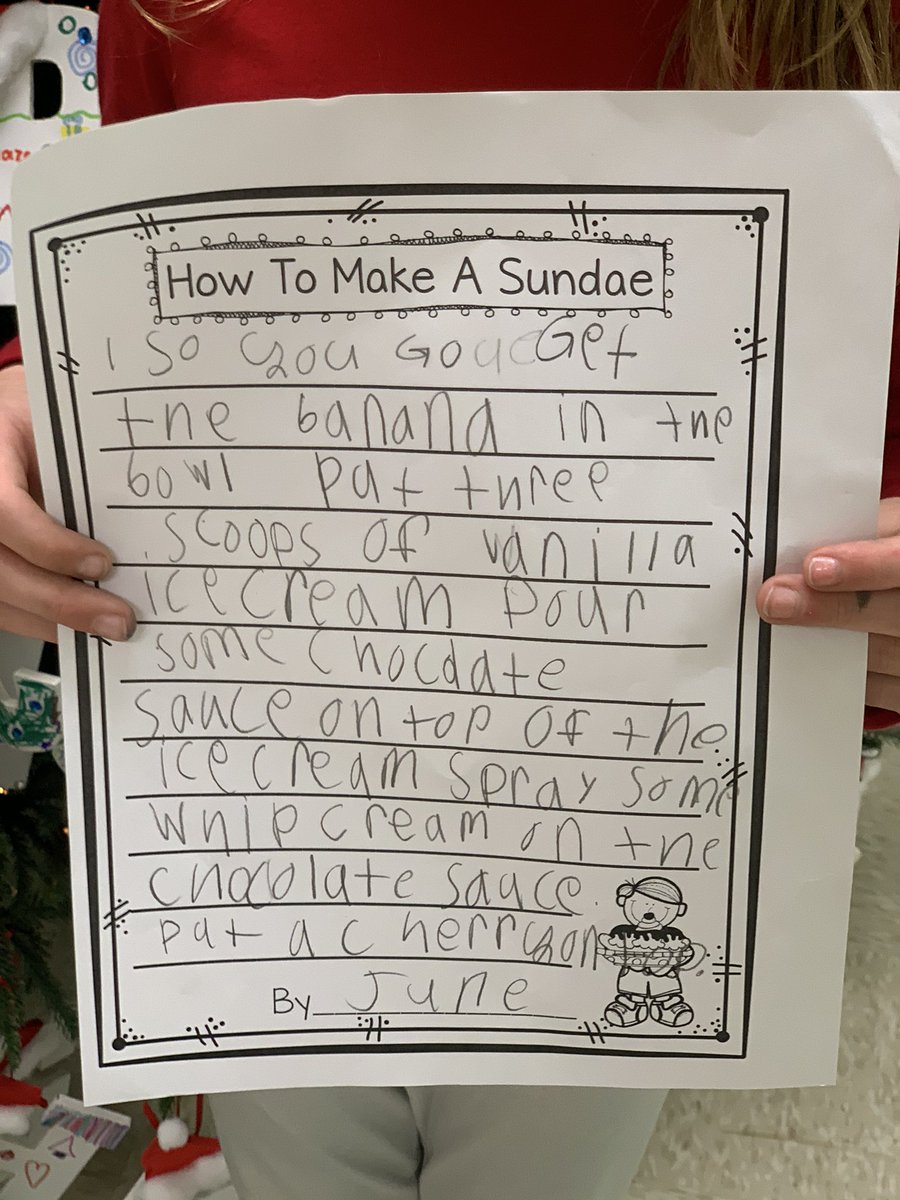 How To Make A Sundae
1 so you Go Get
the banana in the
bowl put three
scoops of vanilla
ice cream pour
some chocolate
sauce on top of the
ice cream spray some
whip cream on the
chocolate sauce.
put a cherry on
By June